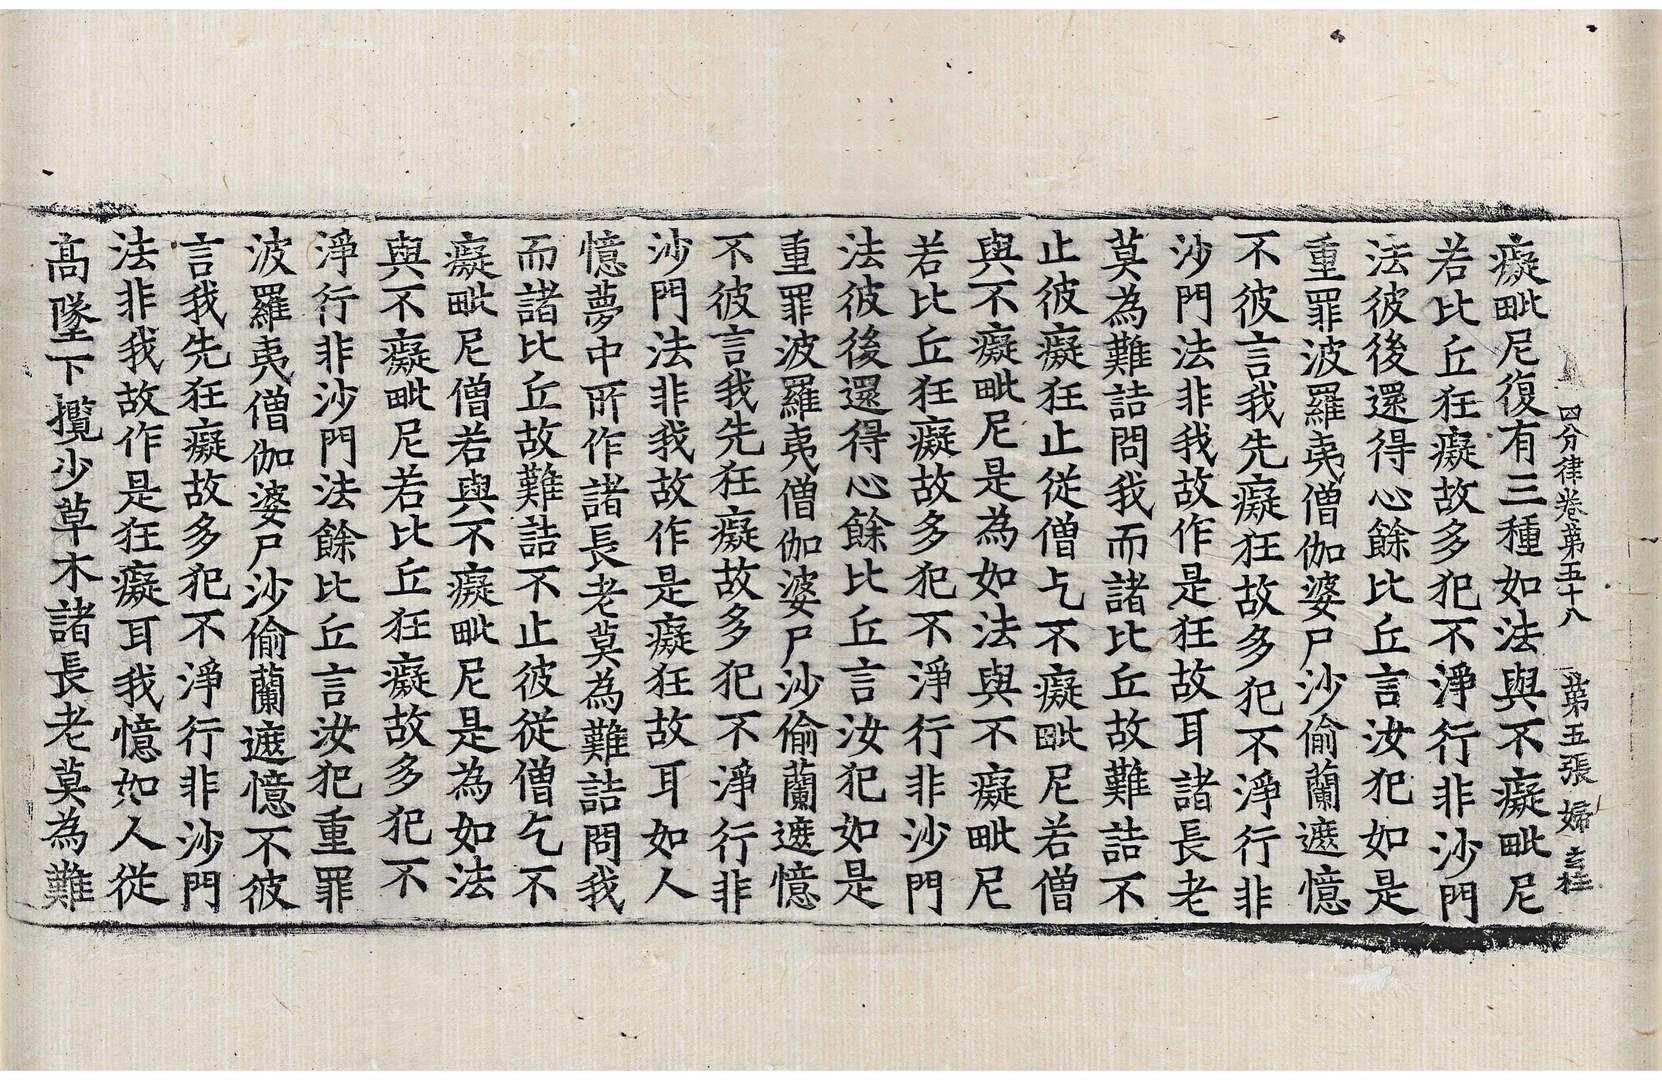 四分律卷第五十八 第五張 婦
癡毗尼復有三種如法與不癡毗尼
若比丘狂癡故多犯不淨行非沙門
法彼後還得心餘比丘言汝犯如是
重罪波羅夷僧伽婆尸沙偷蘭遮憶
不彼言我先癡狂故多犯不淨行非
沙門法非我故作是狂故耳諸長老
莫為難詰問我而諸比丘故難詰不
止彼癡狂止從僧乞不癡毗尼若僧
與不癡毗尼是為如法與不癡毗尼
若比丘狂癡故多犯不淨行非沙門
法彼後還得心餘比丘言汝犯如是
重罪波羅夷僧伽婆尸沙偷蘭遮憶
不彼言我先狂癡故多犯不淨行非
沙門法非我故作是癡狂故耳如人
憶夢中所作諸長老莫為難詰問我
而諸比丘故難詰不止彼從僧乞不
癡毗尼僧若與不癡毗尼是為如法
與不癡毗尼若比丘狂癡故多犯不
淨行非沙門法餘比丘言汝犯重罪
波羅夷僧伽婆尸沙偷蘭遮憶不彼
言我先狂癡故多犯不淨行非沙門
法非我故作是狂癡耳我憶如人從
高墜下攬少草木諸長老莫為難